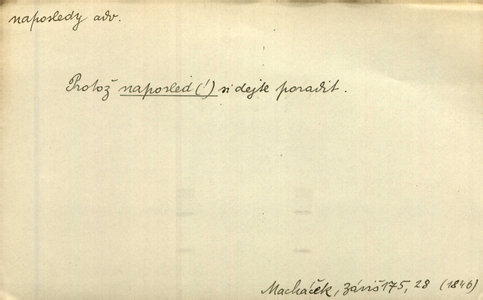 naposledy adv.
Protož naposled (!) si dejte poradit.
Macháček, Záviš 175, 28 (1846)